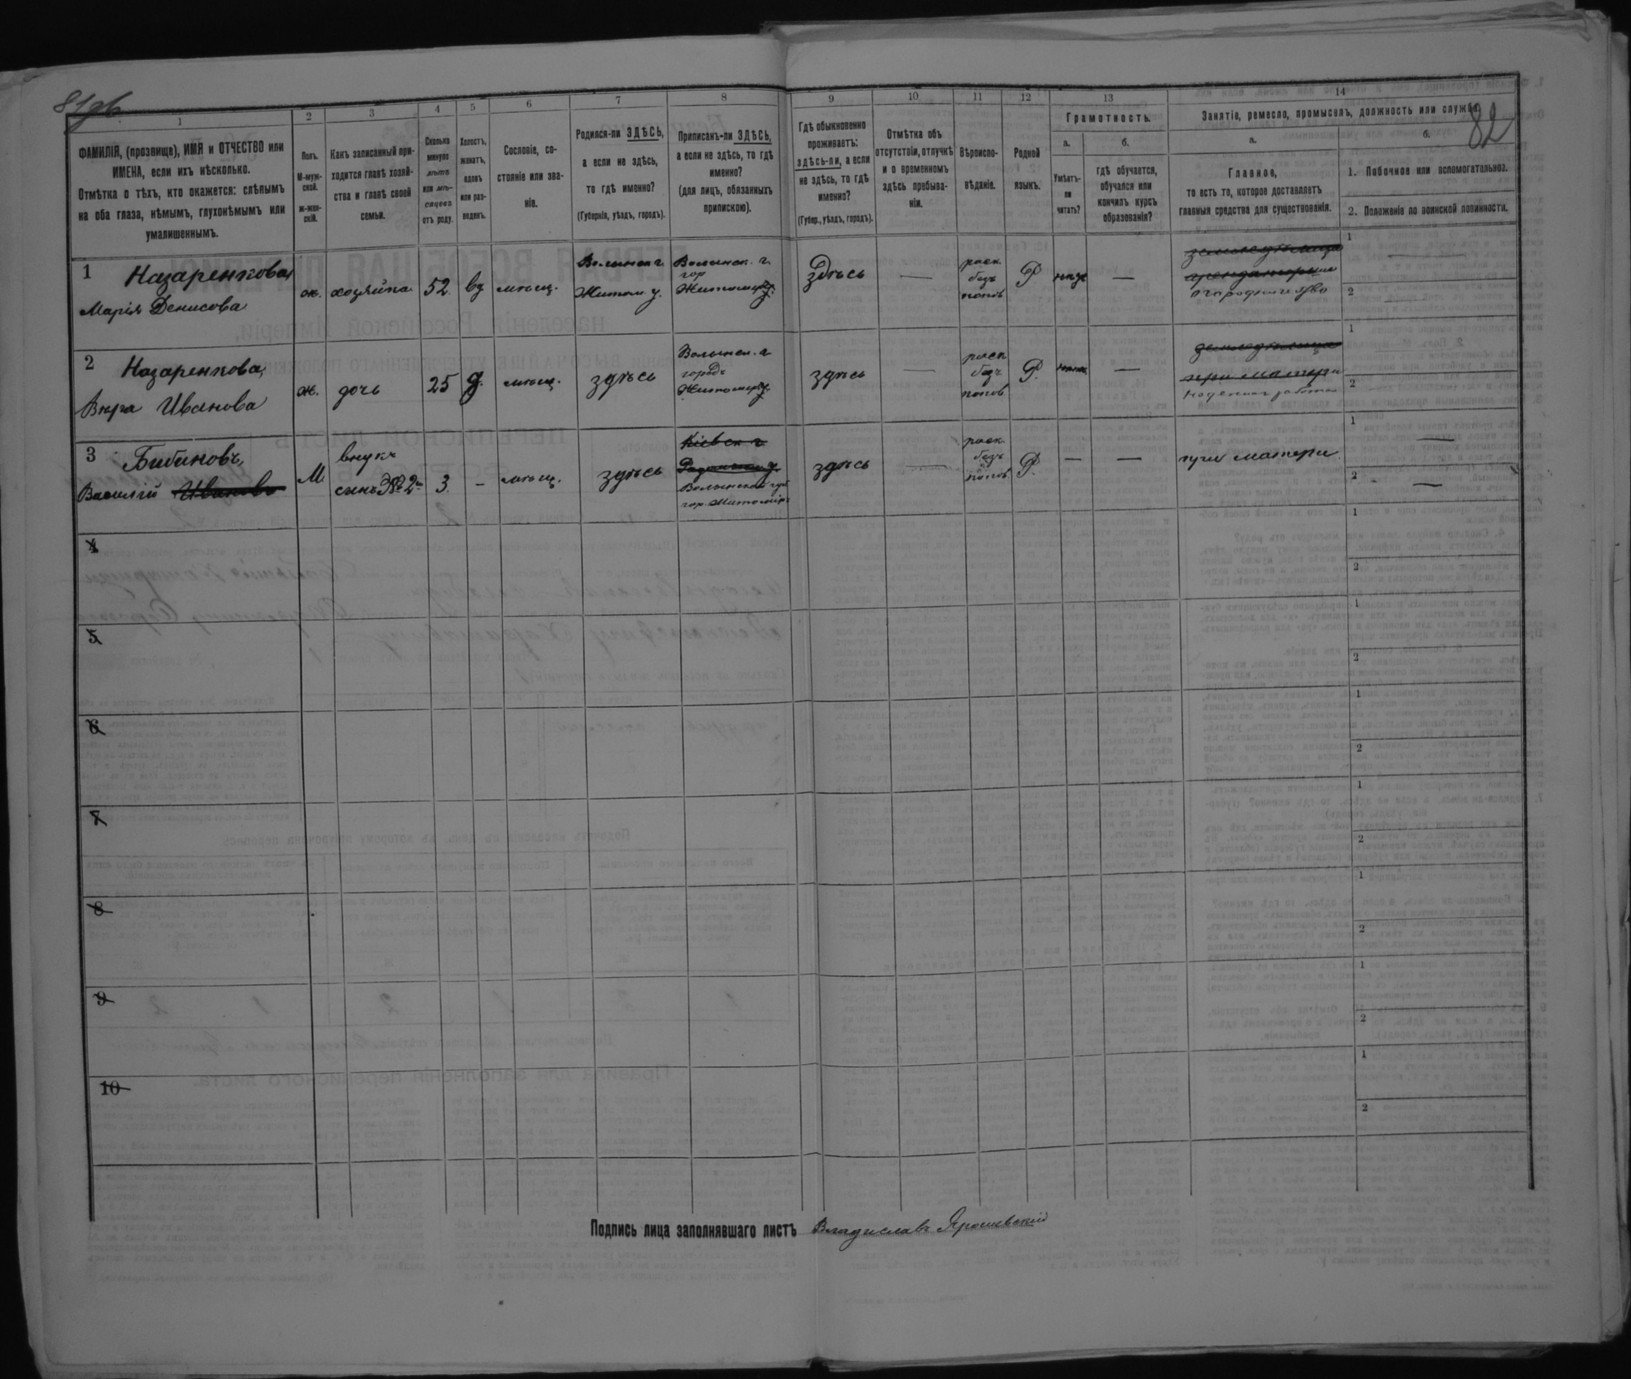 81об
82
1
2
3
4
5
6
7
8
9
10
11
12
13
14
ФАМИЛІЯ, (прозвище), ИМЯ и ОТЧЕСТВО или
ИМЕНА, если ихъ нѣсколько.
Отмѣтка о тѣхъ, кто окажется: слѣпымъ
на оба глаза, нѣмымъ, глухонѣмымъ или
умалишеннымъ.
Полъ.
М-муж-
ской.
ж-жен-
скій.
Какъ записанный при-
ходится главѣ хозяй-
ства и главѣ своей
семьи.
Сколько
минуло
лѣтъ
или мѣ-
сяцевъ
отъ роду.
Холостъ,
женатъ,
вдовъ
или раз-
веденъ.
Сословіе, со-
стояніе или зва-
ніе.
Родился-ли ЗДѢСЬ,
а если не здѣсь,
то гдѣ именно?
(Губернія, уѣздъ, городъ).
Приписанъ-ли ЗДѢСЬ,
а если не здѣсь, то гдѣ
именно?
(для лицъ, обязанныхъ
припискою).
Гдѣ обыкновенно
проживаетъ:
здѣсь-ли, а если
не здѣсь, то гдѣ
именно?
(Губер., уѣздъ, городъ).
Отмѣтка объ
отсутствіи, отлучкѣ
и о временномъ
здѣсь пребыва-
ніи.
Вѣроиспо-
вѣданіе.
Родной
языкъ.
Грамотность.
а.
Умѣетъ-
ли
читать?
б.
гдѣ обучается,
обучался или
кончилъ курсъ
образованія?
Занятіе, ремесло, промыселъ, должность или служба.
а.
Главное,
то есть то, которое доставляетъ
главныя средства для существованія.
б.
1. Побочное или вспомогательное.
2. Положеніе по воинской повинности.
1
Назаренкова
Марія Денисова
ж.
хозяйка
52
вд
мѣщ.
Волынск г.
Житом у.
Волынск. г.
гор
Житомир
здѣсь
—
раск
безъ
поповъ
Р
—
земледѣлица
огородничество
1
2
2
Назаренкова,
Вѣра Иванова
ж.
дочь
25
д.
мѣщ.
здѣсь
Волынск. г
городъ
Житомир
здѣсь
—
раск
безъ
поповъ
Р.
—
земледѣлица
при матери
1
2
3
Бибиковъ,
Василій Ивановъ
М
внукъ
сынъ № 2
3
-
мѣщ.
здѣсь
Кіевск г.
Волынск губ
гор Житомиръ
здѣсь
—
раск
безъ
поповъ
Р.
—
—
при матери
1 —
2 —
4
1
2
5
1
2
6
1
2
7
1
2
8
1
2
9
1
2
10
1
2
Подпись лица заполнявшаго листъ Владиславъ Ярошевскій